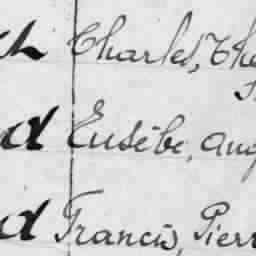 ch Charles, The
d Eusèbe, Aug
d Francis, Pierr